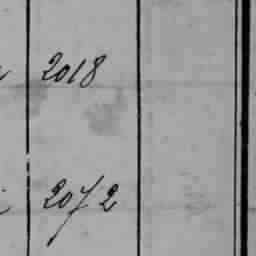 2018
2072